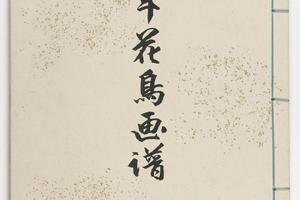 花鳥画譜